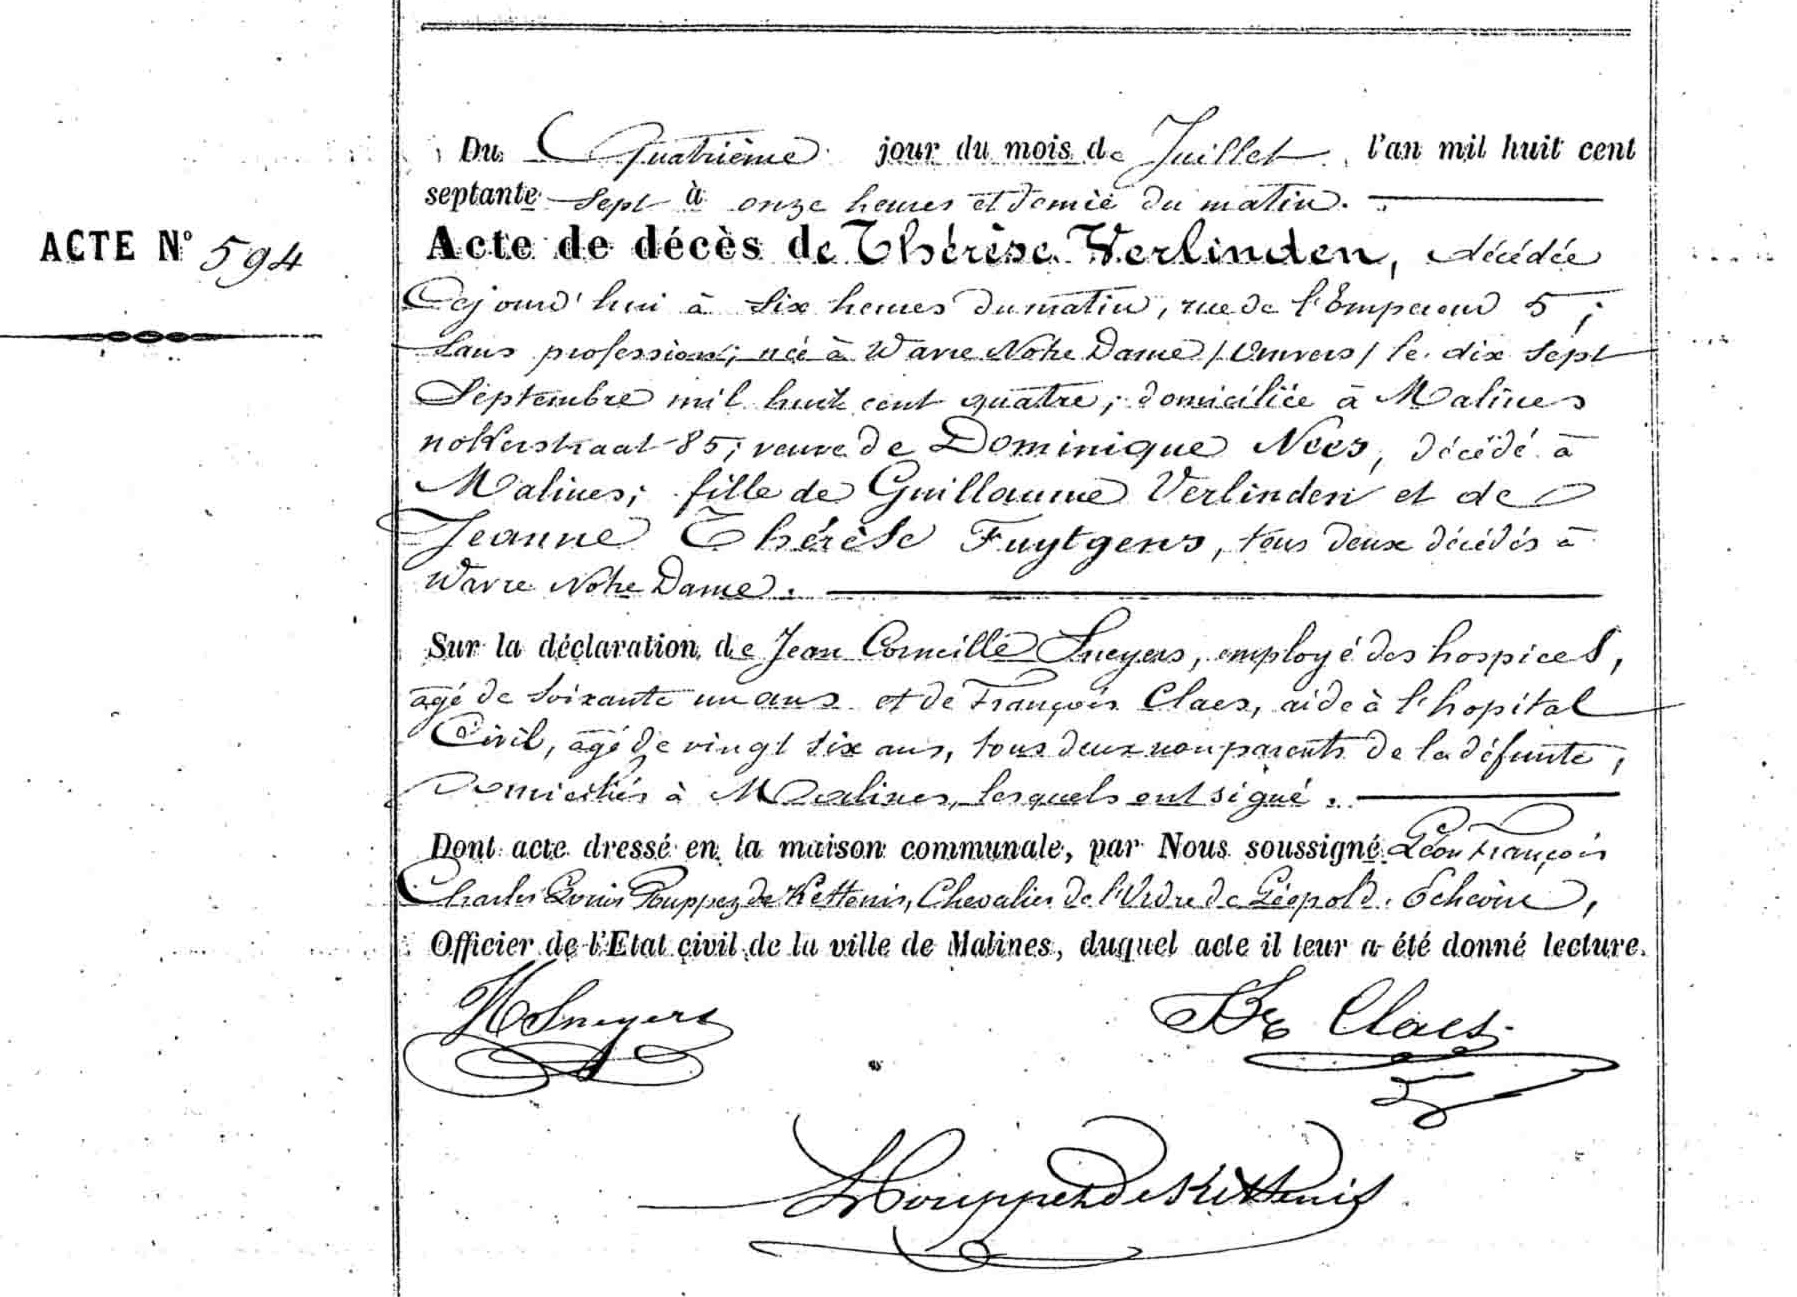 Du Quatrième jour du mois de Juillet l'an mil huit cent
septante sept à onze heures et demie du matin.
ACTE N° 594
Acte de décès de Thérèse Verlinden, décédée
Cejourd'hui à six heures du matin, rue de l'Empereur 5;
sans profession; née à Wavre Notre Dame /Anvers/ le dix sept
Septembre mil huit cent quatre; domiciliée à Malines
nokerstraat 85; veuve de Dominique Nees, décédé à
Malines; fille de Guillaume Verlinden et de
Jeanne Thérèse Fuytgens, tous deux décédés à
Wavre Notre Dame.
Sur la déclaration de Jean Corneille Sneyers, employé des hospices,
âgé de soixante un ans et de François Claes, aide à l'hopital
Civil, âgé de vingt six ans, tous deux non parents de la défunte,
Domiciliés à Malines, lesquels ont signé.
Dont acte dressé en la maison communale, par Nous soussigné Léon François
Charles Louis Pouppez de Kettenis, Chevalier de l'Ordre de Léopold, Echevin,
Officier de l'Etat civil de la ville de Malines, duquel acte il leur a été donné lecture.
Sneyers
Fr Claes
Pouppez de Kettenis